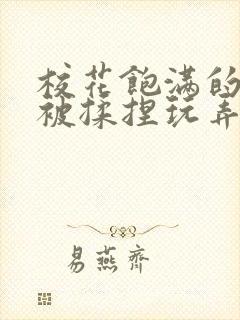 校花饱满的
被揉捏玩弄
易燕齐